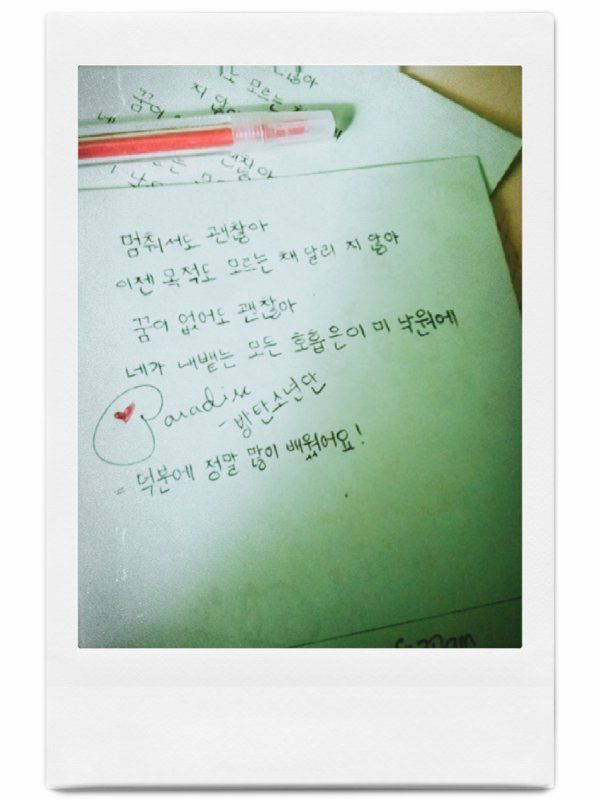 꿈이
지 않
모르는 채
멈춰서도 괜찮아
이젠 목적도 모르는 채 달리 지 않아
꿈이 없어도 괜찮아
네가 내뱉는 모든 호흡은이 미 낙원에
Paradise
- 방탄소년단
= 덕분에 정말 많이 배웠어요!